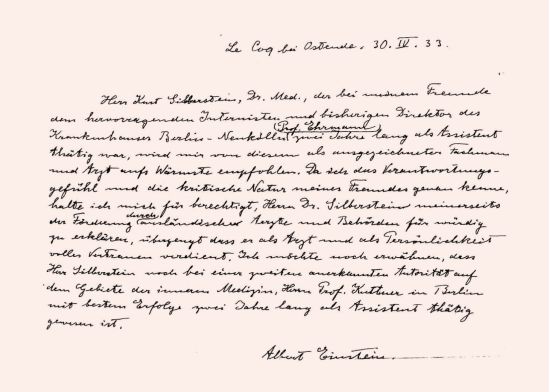 Le Coq bei Ostende. 30. IV. 33.
Herr Kurt Silberstein, Dr. Med., der bei meinem Freunde
dem hervorragenden Internisten und bisherigen Direktor des
(Prof. Ehrmann)
Krankenhauses Berlin-Neukölln zwei Jahre lang als Assistent
thätig war, wird mir von diesem als ausgezeichneter Fachmann
und Arzt aufs Wärmste empfohlen. Da ich das Verantwortungs-
gefühl und die kritische Natur meines Freundes genau kenne,
halte ich mich für berechtigt, Herrn Dr. Silberstein meinerseits
der Förderung durch ausländische Aerzte und Behörden für würdig
zu erklären, überzeugt dass er als Arzt und als Persönlichkeit
volles Vertrauen verdient. Ich möchte noch erwähnen, dass
Herr Silberstein noch bei einer zweiten anerkannten Autorität auf
dem Gebiete der inneren Medizin, Herrn Prof. Kuttner in Berlin
mit bestem Erfolge zwei Jahre lang als Assistent thätig
gewesen ist.
Albert Einstein.